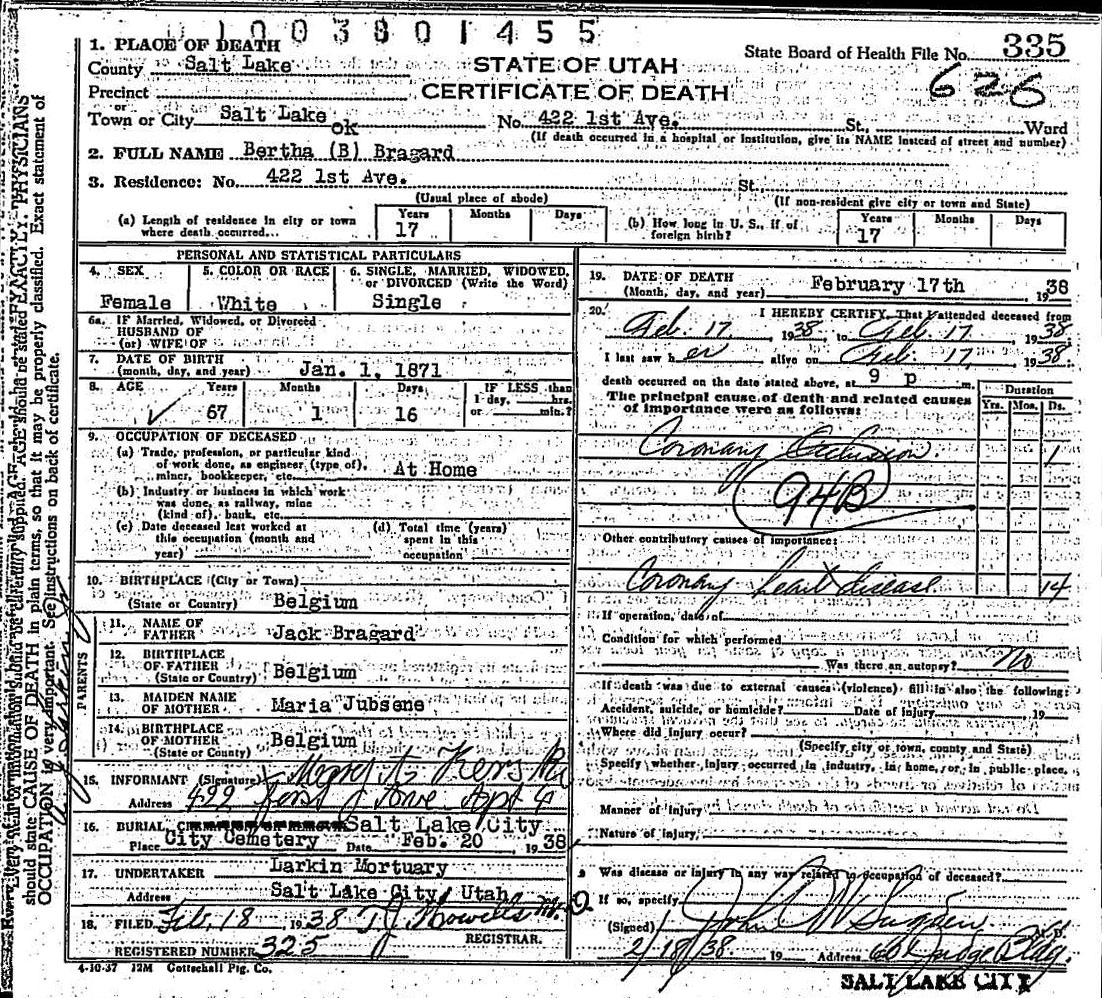 1003801455
1. PLACE OF DEATH
County Salt Lake
STATE OF UTAH
State Board of Health File No. 335
Precinct
CERTIFICATE OF DEATH
626
or
Town or City Salt Lake
ok
No. 422 1st Ave. St. Ward
(If death occurred in a hospital or institution, give its NAME instead of street and number)
2. FULL NAME Bertha (B) Bragard
3. Residence: No. 422 1st Ave. St.
(Usual place of abode)
(If non-resident give city or town and State)
(a) Length of residence in city or town where death occurred... Years 17 Months Days
(b) How long in U. S., if of foreign birth? Years 17 Months Days
PERSONAL AND STATISTICAL PARTICULARS
4. SEX Female
5. COLOR OR RACE White
6. SINGLE, MARRIED, WIDOWED, or DIVORCED (Write the Word) Single
6a. IF Married, Widowed, or Divorced
HUSBAND OF
(or) WIFE OF
7. DATE OF BIRTH
(month, day, and year) Jan. 1, 1871
8. AGE Years 67 Months 1 Days 16 IF LESS than 1 day, hrs. or min.?
9. OCCUPATION OF DECEASED
(a) Trade, profession, or particular kind of work done, as engineer (type of), miner, bookkeeper, etc. At Home
(b) Industry or business in which work was done, as railway, mine (kind of), bank, etc.
(c) Date deceased last worked at this occupation (month and year)
(d) Total time (years) spent in this occupation
10. BIRTHPLACE (City or Town)
(State or Country) Belgium
PARENTS
11. NAME OF FATHER Jack Bragard
12. BIRTHPLACE OF FATHER (State or County) Belgium
13. MAIDEN NAME OF MOTHER Maria Jubsene
14. BIRTHPLACE OF MOTHER (State or County) Belgium
15. INFORMANT (Signature)
Address 422 First Ave Apt 4
16. BURIAL, Salt Lake City
Place City Cemetery Date Feb. 20, 1938
17. UNDERTAKER Larkin Mortuary
Address Salt Lake City, Utah
18. FILED Feb. 18, 1938 T J Howells M.D.
REGISTRAR.
REGISTERED NUMBER 325
4-10-37 12M Gottschall Ptg. Co.
19. DATE OF DEATH
(Month, day, and year) February 17th 1938
20. I HEREBY CERTIFY, That I attended deceased from
Feb. 17, 1938, to Feb. 17, 1938.
I last saw her alive on Feb. 17, 1938.
death occurred on the date stated above, at 9 p m.
The principal cause of death and related causes of importance were as follows:
Duration
Yrs. Mos. Ds.
Coronary Occlusion 1
94B
Other contributory causes of importance:
Coronary heart disease 14
If operation, date of
Condition for which performed
Was there an autopsy? No
If death was due to external causes (violence) fill in also the following:
Accident, suicide, or homicide? Date of injury 19
Where did injury occur?
(Specify city or town, county and State)
Specify whether injury occurred in industry, in home, or in public place.
Manner of injury
Nature of injury
Was disease or injury in any way related to occupation of deceased?
If so, specify
(Signed) John W Sugden M.D.
2/18/38. 19 Address Judge Bldg.
SALT LAKE CITY
Every item of information should be carefully supplied. AGE should be stated EXACTLY. PHYSICIANS
should state CAUSE OF DEATH in plain terms, so that it may be properly classified. Exact statement of
OCCUPATION is very important. See instructions on back of certificate.